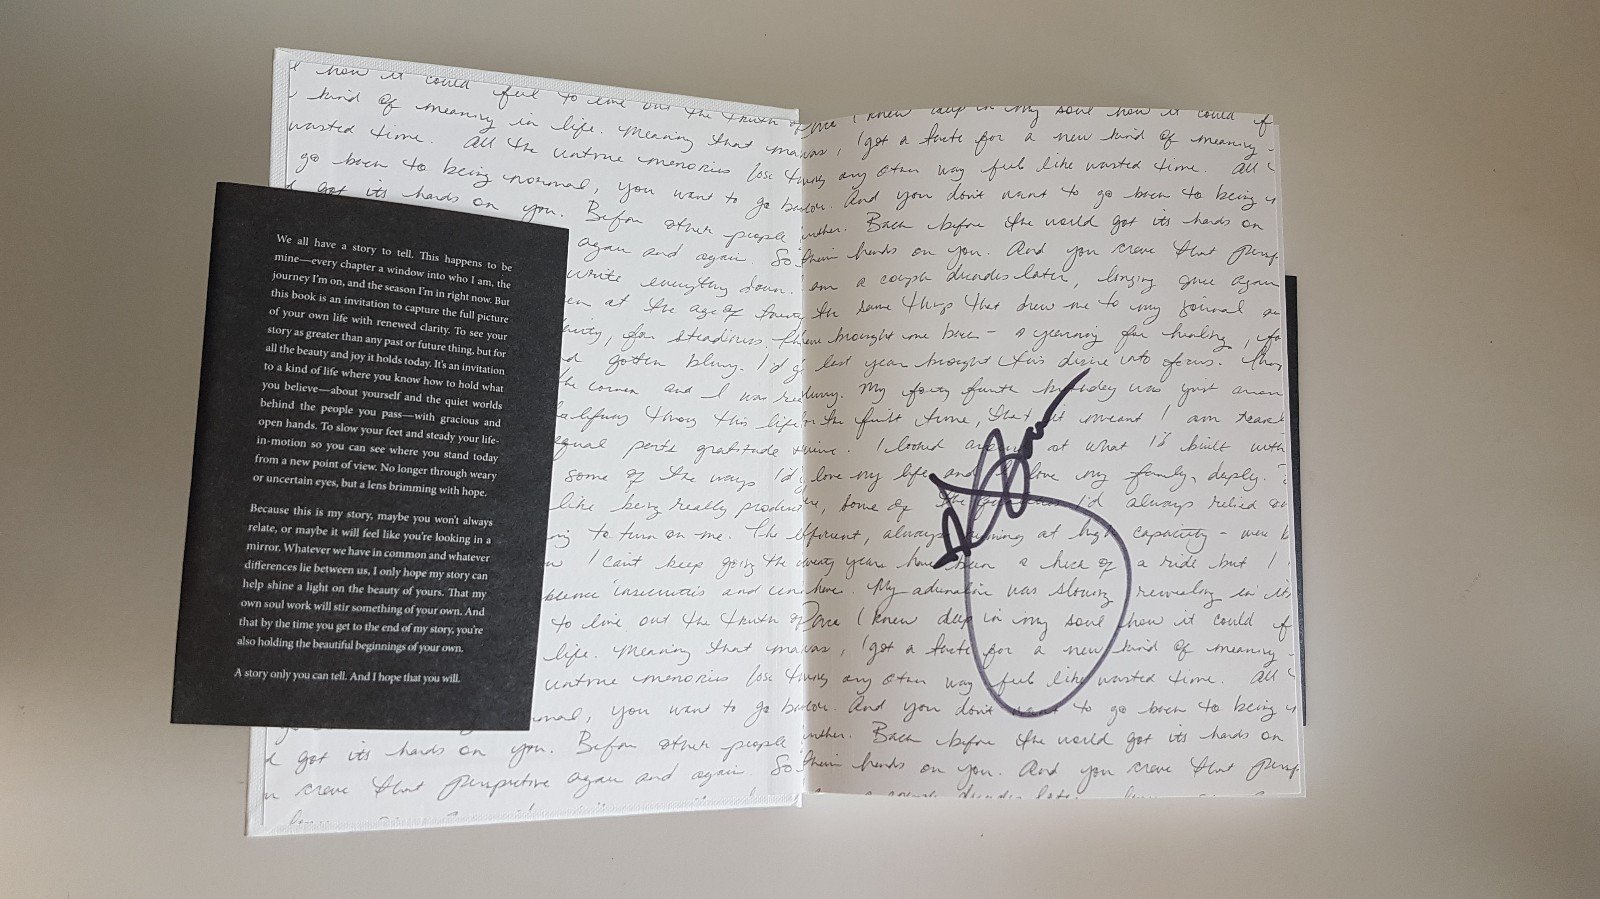 how it could feel to live out the truth
kind of meaning in life. Meaning that
wasted time. All the untrue memories lose
go back to being normal, you want to go
got its hands on you. Before other people
again and again. So
write everything down.
at the age of
for steadiness.
gotten blurry. I'd
the corner and I was
halfway through this life
equal parts gratitude
some of the ways I'd
like being really
to turn on me. The
I can't keep going the
insecurities and
to live out the truth
life. Meaning that
untrue memories lose
you want to go
got its hands on you. Before other people
crave that perspective again and again. So
We all have a story to tell. This happens to be
mine—every chapter a window into who I am, the
journey I'm on, and the season I'm in right now. But
this book is an invitation to capture the full picture
of your own life with renewed clarity. To see your
story as greater than any past or future thing, but for
all the beauty and joy it holds today. It's an invitation
to a kind of life where you know how to hold what
you believe—about yourself and the quiet worlds
behind the people you pass—with gracious and
open hands. To slow your feet and steady your life-
in-motion so you can see where you stand today
from a new point of view. No longer through weary
or uncertain eyes, but a lens brimming with hope.
Because this is my story, maybe you won't always
relate, or maybe it will feel like you're looking in a
mirror. Whatever we have in common and whatever
differences lie between us, I only hope my story can
help shine a light on the beauty of yours. That my
own soul work will stir something of your own. And
that by the time you get to the end of my story, you're
also holding the beautiful beginnings of your own.
A story only you can tell. And I hope that you will.
I knew deep in my soul how it could
I got a taste for a new kind of meaning
any other way feel like wasted time. All
And you don't want to go back to being
Back before the world got its hands on
hands on you. And you crave that
a couple decades later, longing once again
the same things that drew me to my journal
brought me back – a yearning for healing,
last year brought this desire into focus.
My forty fourth birthday was just
the first time, that meant I am
I looked around at what I'd built with
love my life and I love my family, deeply.
some of the I'd always relied on
efficient, always running at high capacity – were
years have been a heck of a ride but I
My adrenaline was slowing revealing in its
I knew deep in my soul how it could
I got a taste for a new kind of meaning
any other way feel like wasted time. All
And you don't want to go back to being
Back before the world got its hands on
hands on you. And you crave that
a couple decades later